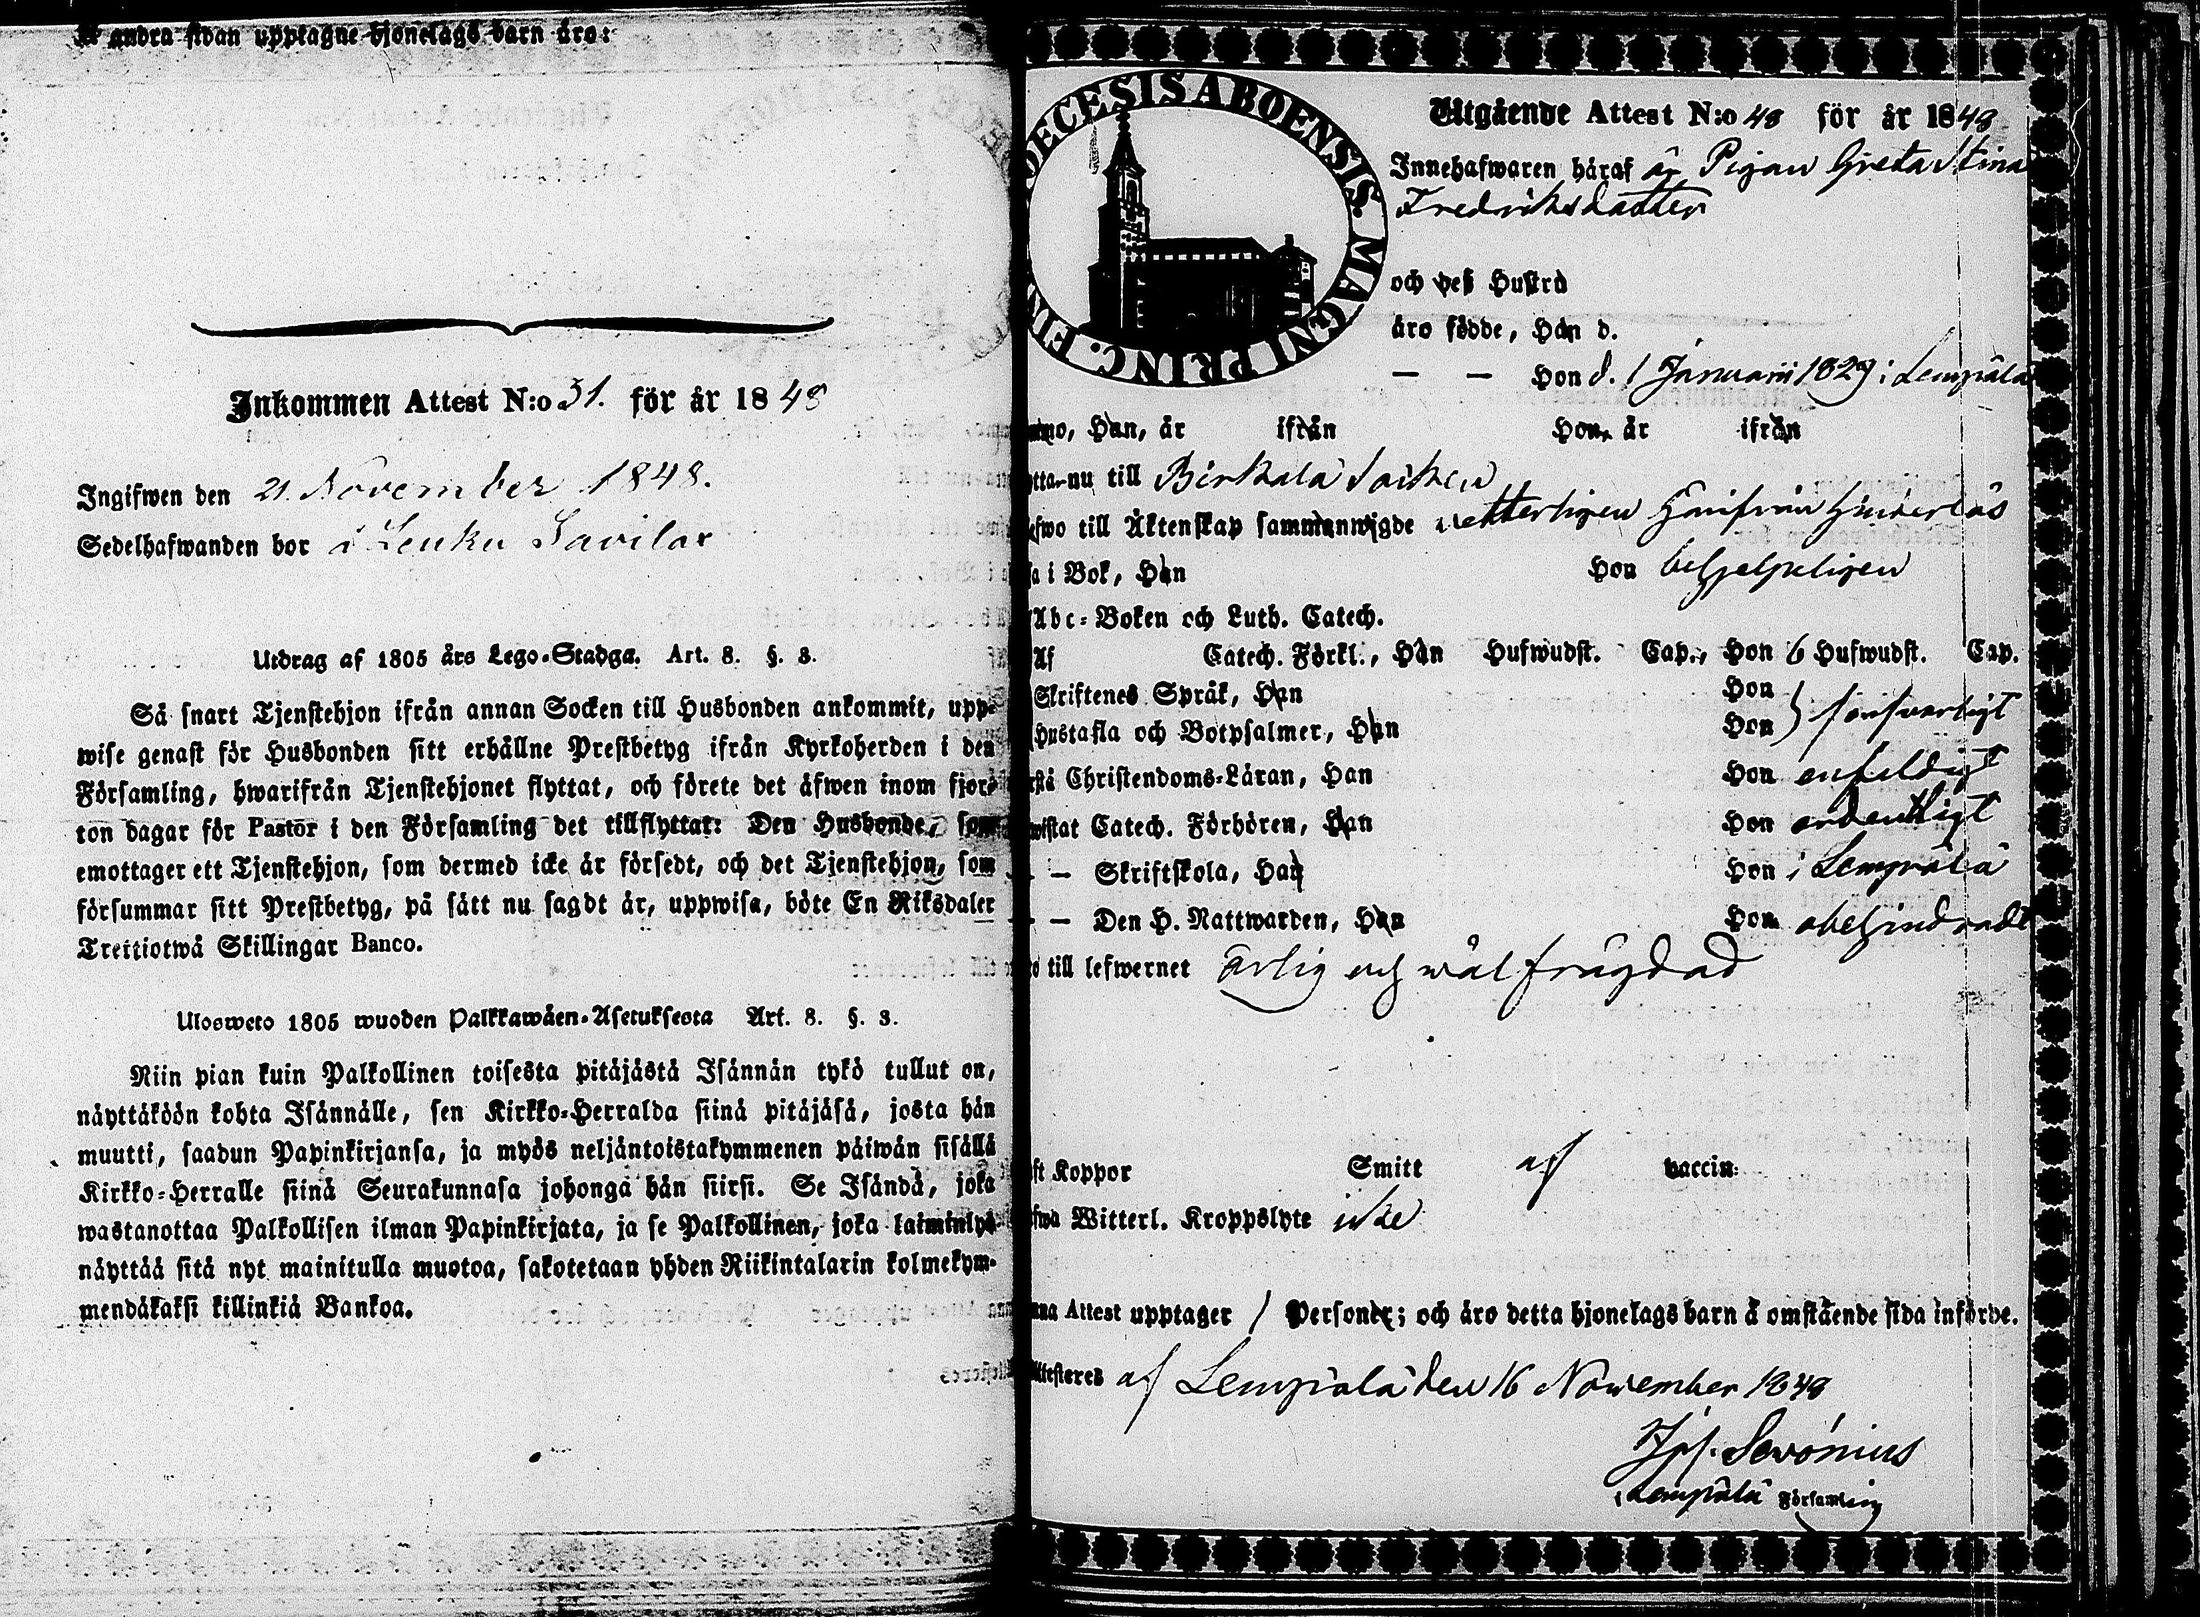 å andra sidan upptagne hjonelags barn äro:
Inkommen Attest N:o 31. för år 1848
Ingifwen den 21. November 1848.
Sedelhafwanden bor å Leuku Savilax
Utdrag af 1805 års Lego-Stadga. Art. 8. §. 3.
Så snart Tjenstehjon ifrån annan Socken till Husbonden ankommit, upp-
wise genast för Husbonden sitt erhållne Prestbetyg ifrån Kyrkoherden i den
Församling, hwarifrån Tjenstehjonet flyttat, och förete det äfwen inom fjor-
ton dagar för Pastor i den Församling det tillflyttat: Den Husbonde, som
emottager ett Tjenstehjon, som dermed icke är försedt, och det Tjenstehjon, som
försummar sitt Prestbetyg, på sätt nu sagdt är, uppwisa, böte En Riksdaler
Trettiotwå Skillingar Banco.
Ulosweto 1805 wuoden Palkkawäen-Asetuksesta Art. 8. §. 3.
Niin pian kuin Palkollinen toisesta pitäjästä Isännän tykö tullut on,
näyttäköön kohta Isännälle, sen Kirkko-Herralda siinä pitäjäsä, josta hän
muutti, saadun Papinkirjansa, ja myös neljäntoistakymmenen päiwän sisällä
Kirkko-Herralle siinä Seurakunnasa johonga hän siirsi. Se Isändä, joka
wastanottaa Palkollisen ilman Papinkirjata, ja se Palkollinen, joka laiminlyö
näyttää sitä nyt mainitulla muotoa, sakotetaan yhden Riikintalarin kolmekym-
mendäkaksi killinkiä Bankoa.
DECESIS ABOENSIS. MAGNI PRINC.
Utgående Attest N:o 48 för år 1848
Innehafwaren häraf är Pigan Greta Stina
Fredriksdotter
och dess Hustru
äro födde, Han d.
— — Hon d. 1 Januarii 1829 i Lempälä
Han, är ifrån Hon, är ifrån
nu till Birkala Socken
till Äktenskap sammanwigde wetterligen härifrån hinderlös
i Bok, Han Hon behjelpeligen
Abc-Boken och Luth. Catech.
Af Catech. Förkl., Han Hufwudst. Cap., Hon 6 Hufwudst. Cap.
Skriftenes Språk, Han Hon
Hustafla och Botpsalmer, Han Hon försvarligt
Christendoms-Läran, Han Hon enfeldigt
Catech. Förhören, Han Hon ordentligt
— Skriftskola, Han Hon i Lempälä
— — Den H. Nattwarden, Han Hon obehindradt
till lefwernet ärlig och wälfrägdad
Koppor Smitt af vaccin:
Witterl. Kroppslyte icke
Attest upptager 1 Personer; och äro detta hjonelags barn å omstående sida införde.
Attesteres af Lempälä den 16 November 1848
Jos. Serónius
i Lempälä Församling